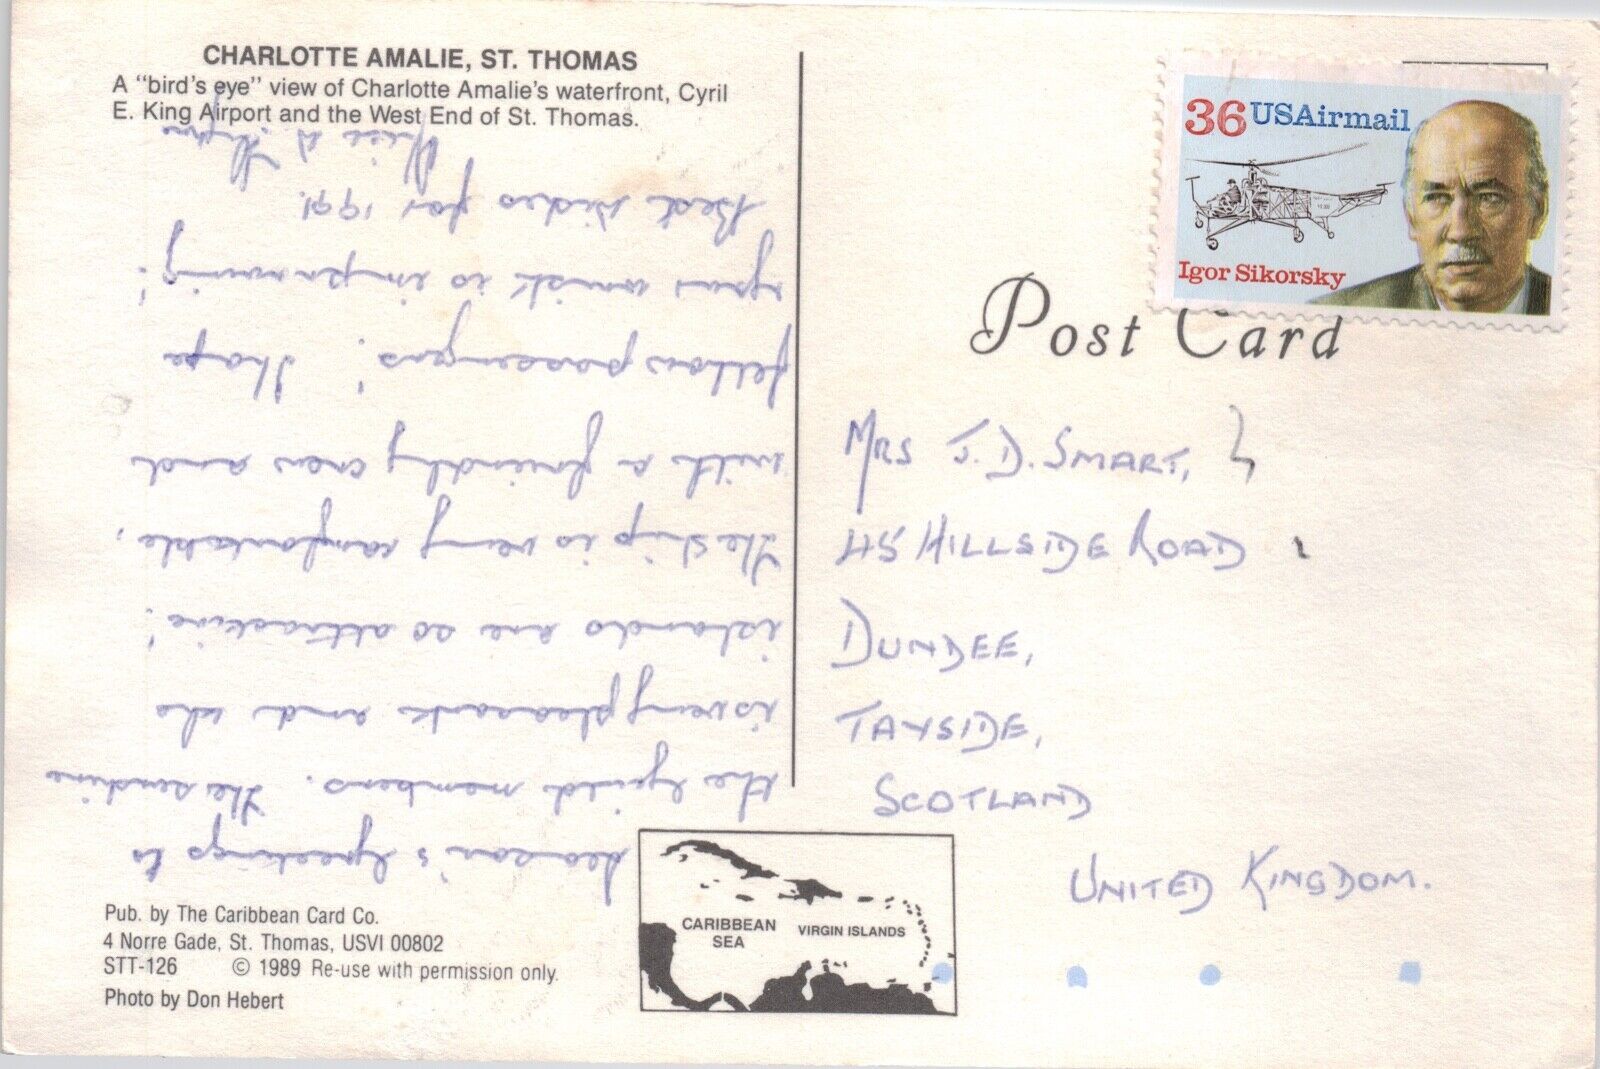 CHARLOTTE AMALIE, ST. THOMAS
A "bird's eye" view of Charlotte Amalie's waterfront, Cyril
E. King Airport and the West End of St. Thomas.
Season's Greetings to
the Guild members. The sunshine
is very pleasant and the
islands are so attractive!
The ship is very comfortable,
with a friendly crew and
fellow passengers! I hope
your wrist is improving!
Best wishes for 1991.
Pub. by The Caribbean Card Co.
4 Norre Gade, St. Thomas, USVI 00802
STT-126 © 1989 Re-use with permission only.
Photo by Don Hebert
CARIBBEAN
SEA
VIRGIN ISLANDS
36 USAirmail
Igor Sikorsky
Post Card
MRS J. D. SMART,
45 HILLSIDE ROAD
DUNDEE,
TAYSIDE,
SCOTLAND
UNITED KINGDOM.